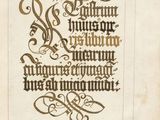 Registrum
huius ope-
ris libri cro-
nicarum
cu figuris et ymagi-
bus ab inicio mundi: